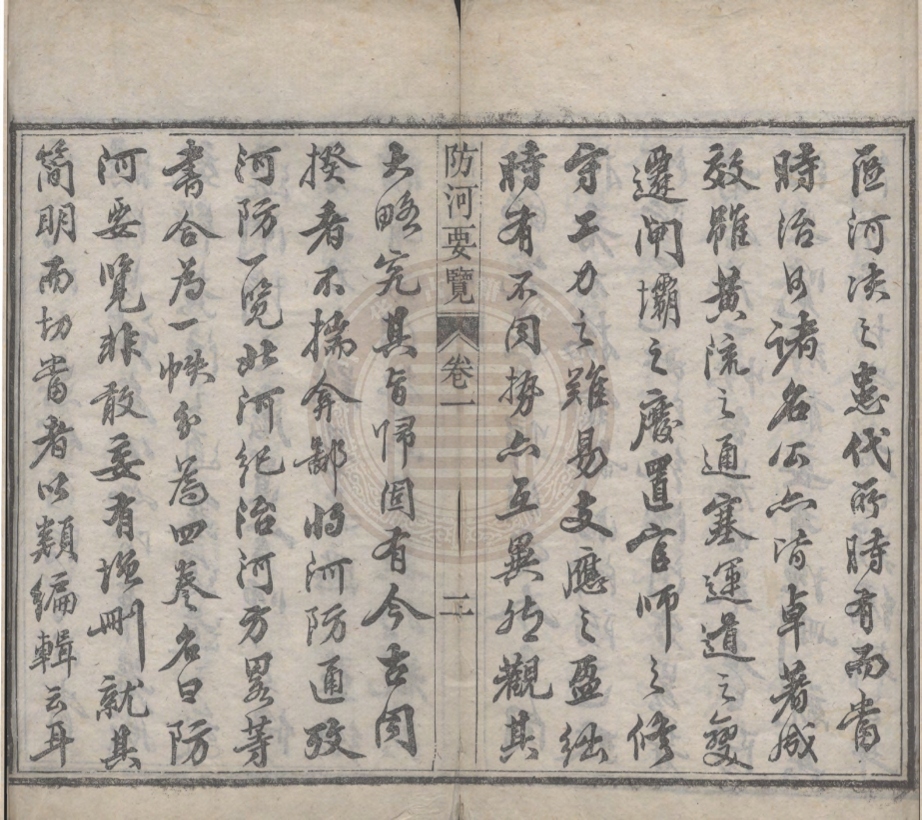 臣河决之患代所時有而當
時治河諸名公亦皆卓著成
效雖黄流之通塞運道之變
遷閘壩之廢置官師之修
守工力之難易支應之盈絀
時有不同勢亦互異然觀其
防河要覽 卷一 二
大略究其旨歸固有今古同
揆者不揣弇鄙將河防通攷
河防一覽北河紀治河方畧等
書合為一帙分為四卷名曰防
河要覽非敢妄有增刪就其
簡明而切當者以類編輯云耳